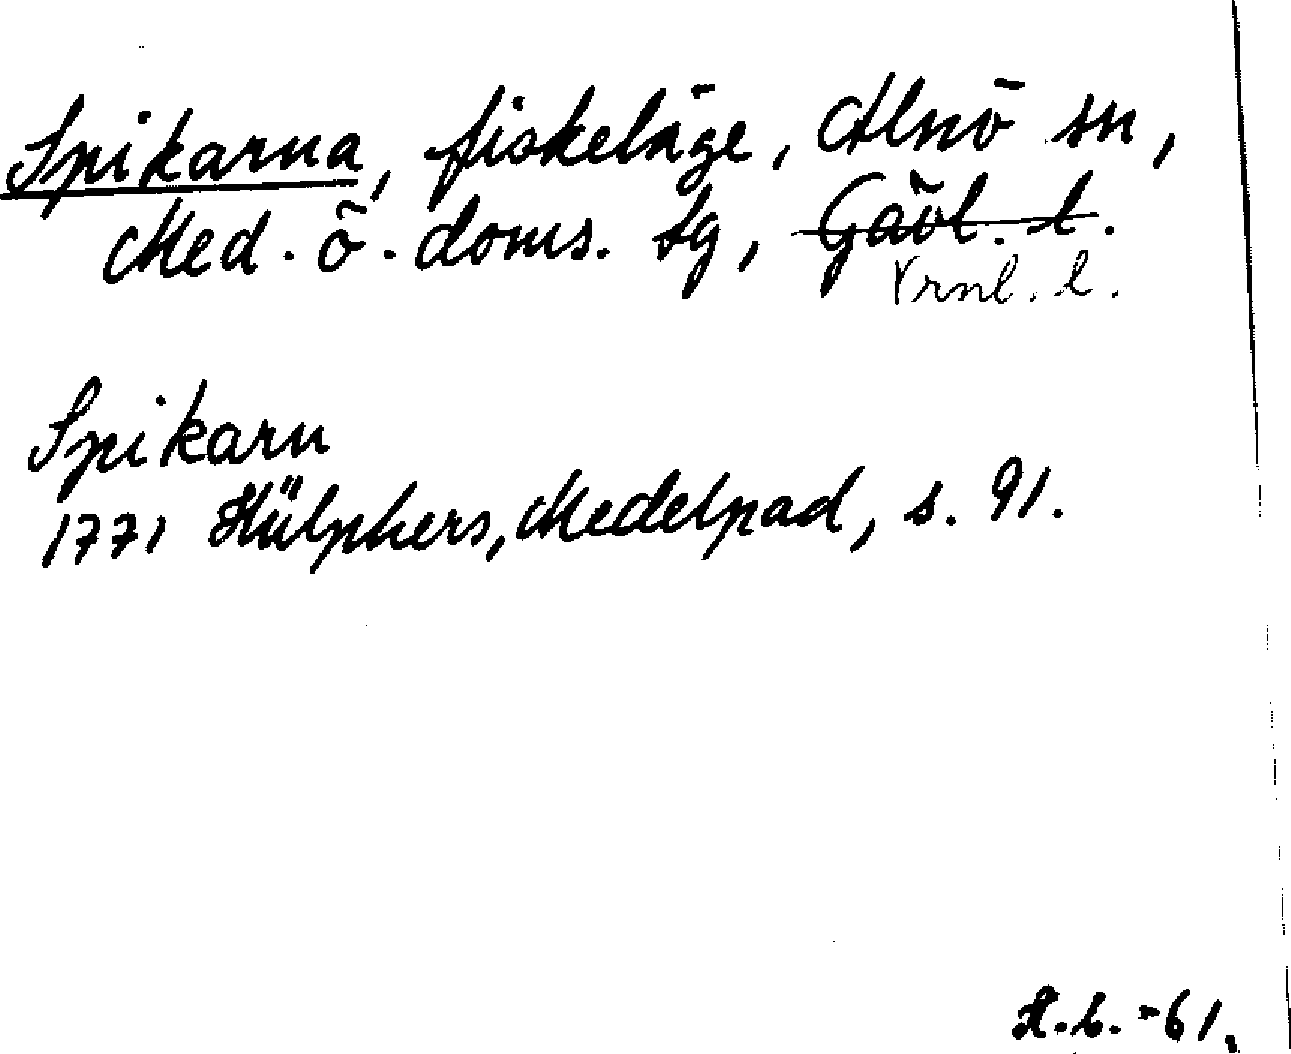 Spikarna, fiskeläge, Alnö sn,
Med. ö. doms. sg, Gävl. l.
Vrnl. l.
Spikarn
1771 Hülphers, Medelpad, s. 91.
-61.